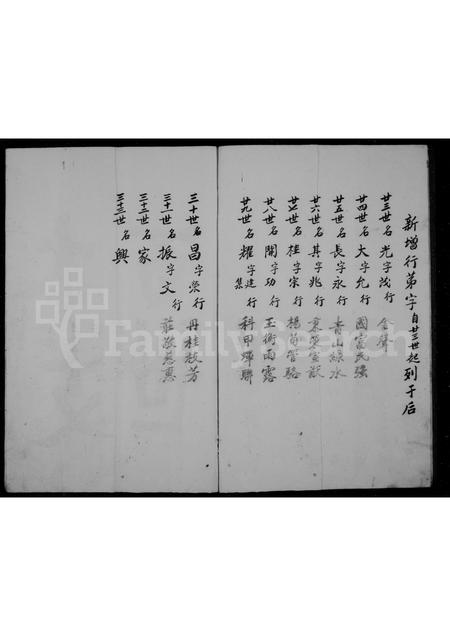 新增行第字自廿三世起列于后
廿三世名光字茂行 金聲
廿四世名大字允行 國富民強
廿五世名長字永行 青山綠水
廿六世名其字兆行
廿七世名桂字宗行
廿八世名開字功行 玉衡雨露
廿九世名耀字建行 集 科甲蟬聯
三十世名昌字榮行 丹桂枝芳
三十一世名振字文行
三十二世名家
三十三世名興
FamilySearch